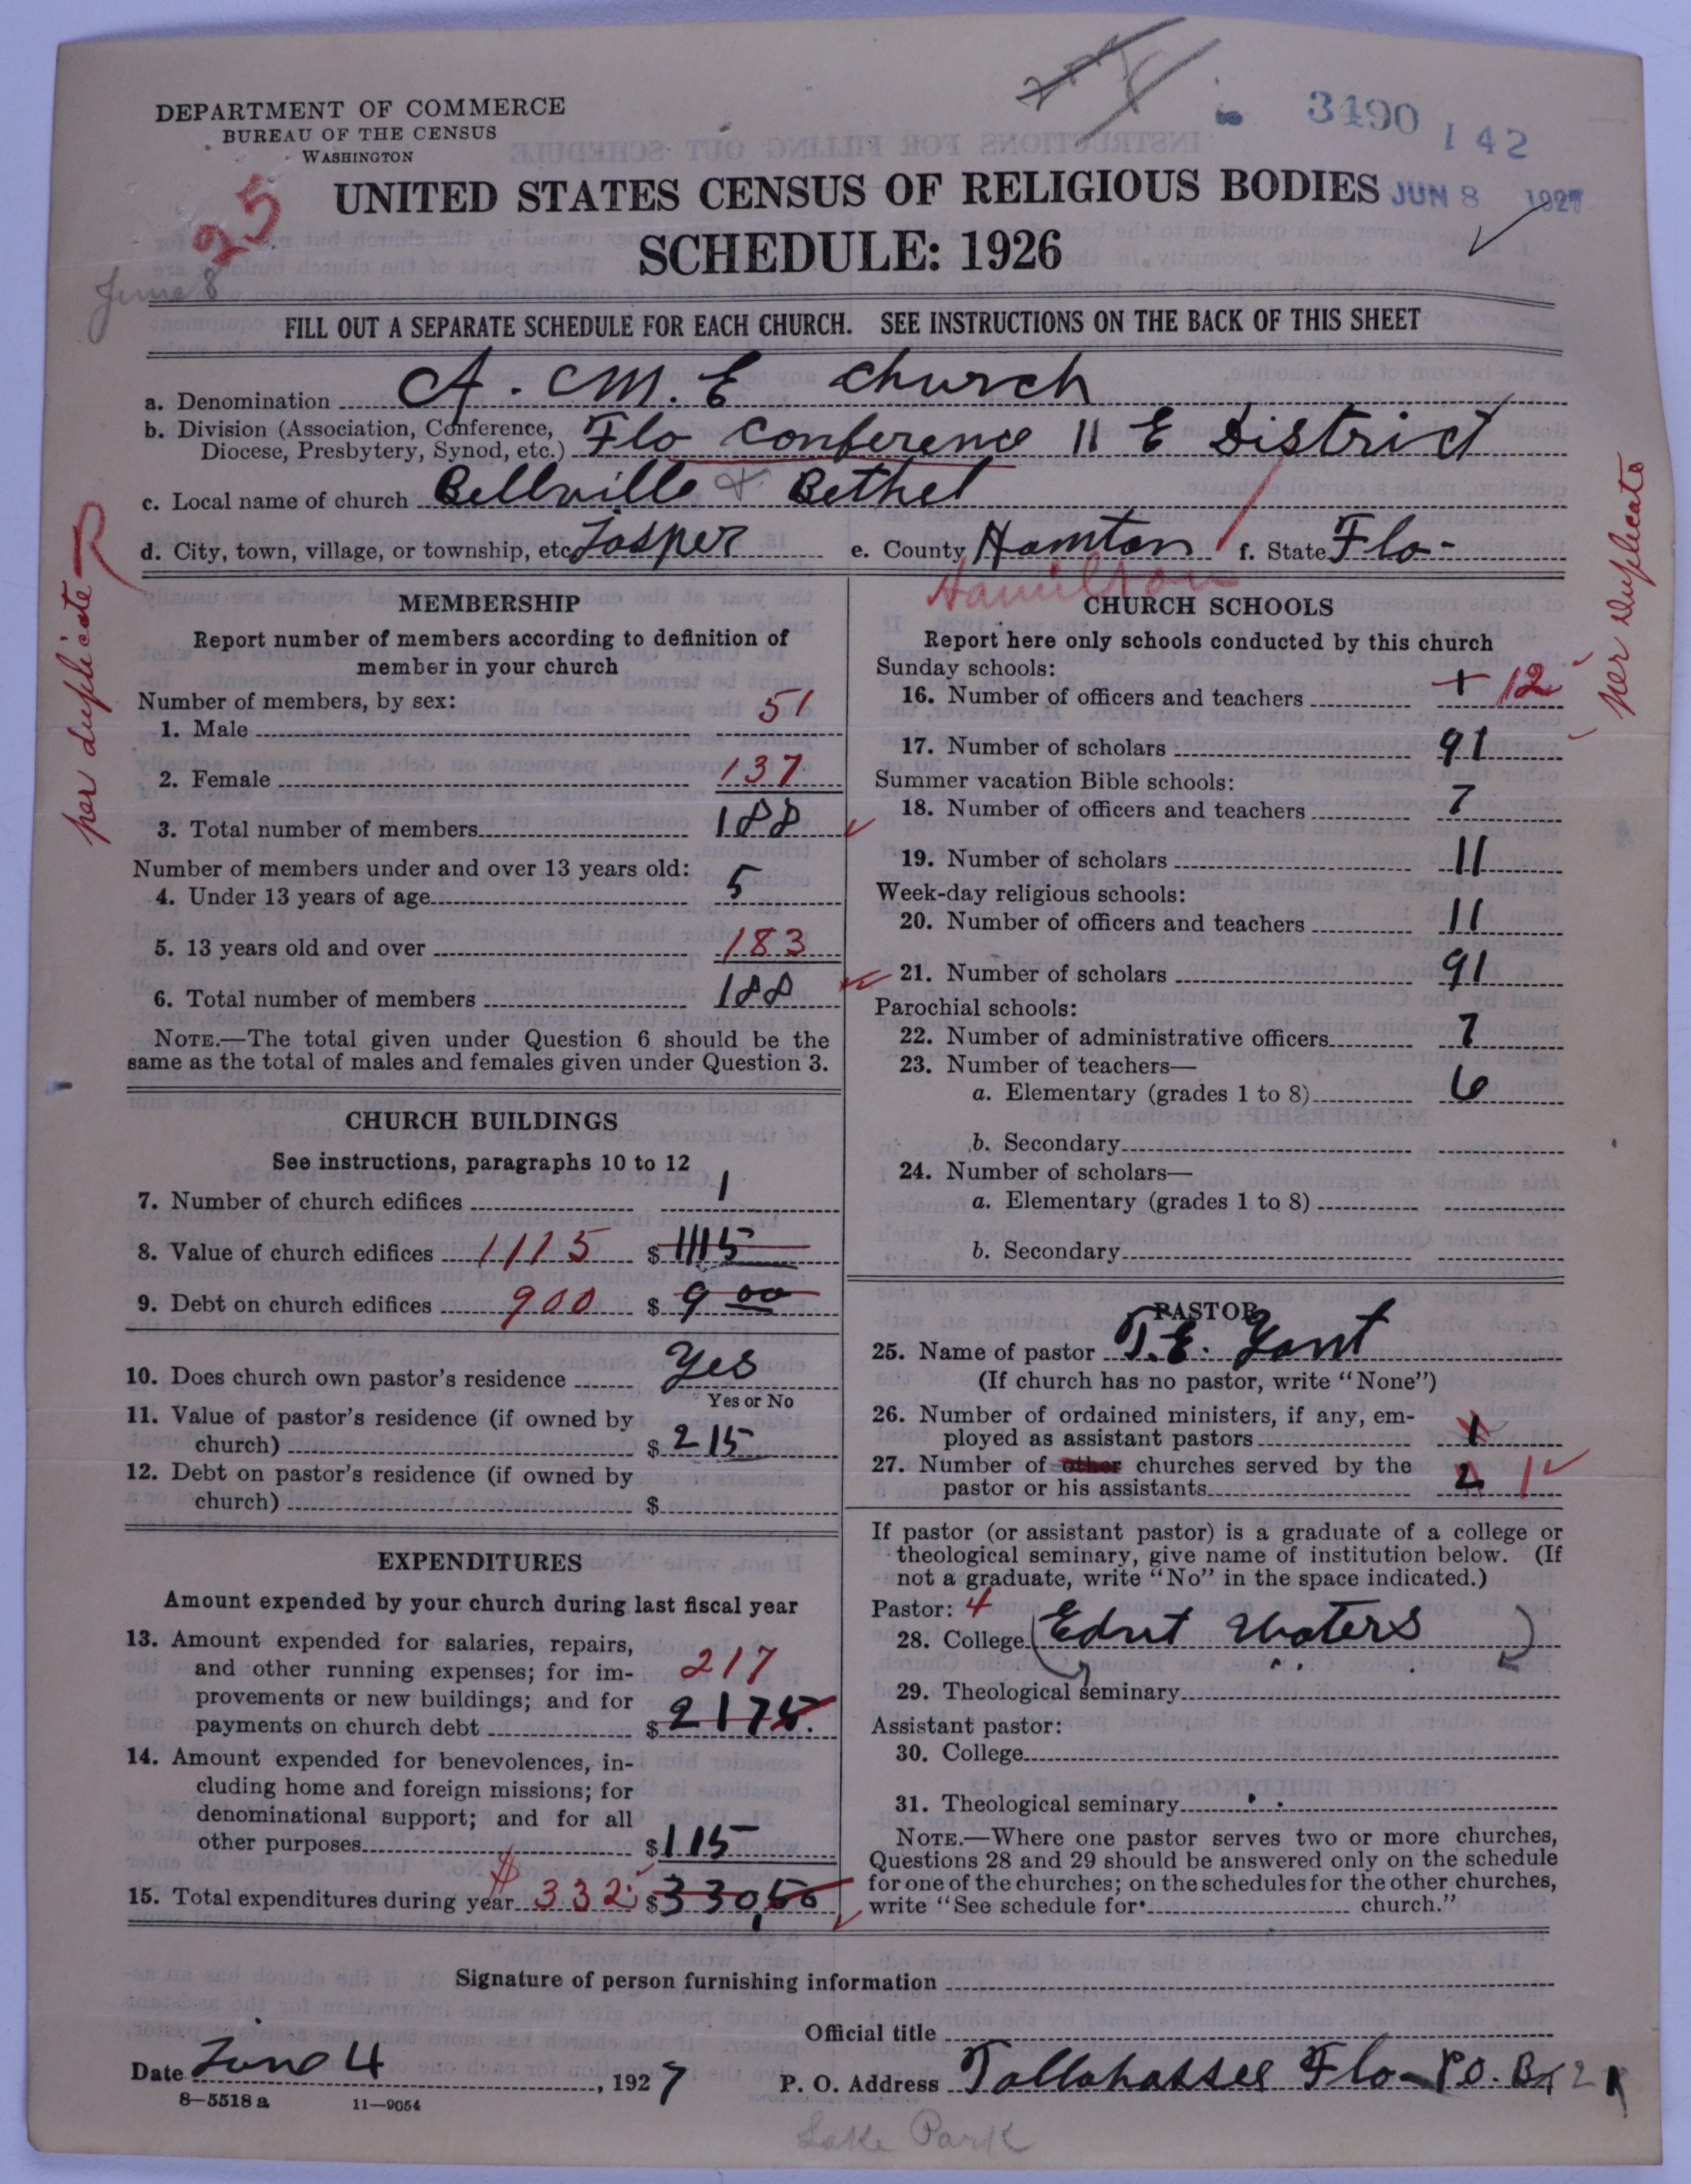 3490
142
DEPARTMENT OF COMMERCE
BUREAU OF THE CENSUS
WASHINGTON
UNITED STATES CENSUS OF RELIGIOUS BODIES
JUN 8 1927
25
SCHEDULE: 1926
June 8
FILL OUT A SEPARATE SCHEDULE FOR EACH CHURCH. SEE INSTRUCTIONS ON THE BACK OF THIS SHEET
a. Denomination A. M. E Church
b. Division (Association, Conference, Diocese, Presbytery, Synod, etc.) Flo Conference 11 E District
c. Local name of church Bellville + Bethel
d. City, town, village, or township, etc. Jasper e. County Hamton f. State Flo-
Hamilton
per duplicate
per duplicate
MEMBERSHIP
Report number of members according to definition of
member in your church
Number of members, by sex:
1. Male 51
2. Female 137
3. Total number of members 188
Number of members under and over 13 years old:
4. Under 13 years of age 5
5. 13 years old and over 183
6. Total number of members 188
NOTE.—The total given under Question 6 should be the
same as the total of males and females given under Question 3.
CHURCH BUILDINGS
See instructions, paragraphs 10 to 12
7. Number of church edifices 1
8. Value of church edifices 1115 $ 1115
9. Debt on church edifices 900 $ 9 00
10. Does church own pastor's residence Yes
Yes or No
11. Value of pastor's residence (if owned by
church) $ 215
12. Debt on pastor's residence (if owned by
church) $
EXPENDITURES
Amount expended by your church during last fiscal year
13. Amount expended for salaries, repairs,
and other running expenses; for im-
217
provements or new buildings; and for
payments on church debt $ 2175.
14. Amount expended for benevolences, in-
cluding home and foreign missions; for
denominational support; and for all
other purposes $ 115
15. Total expenditures during year $ 332 $ 330,50
CHURCH SCHOOLS
Report here only schools conducted by this church
Sunday schools:
16. Number of officers and teachers + 12
17. Number of scholars 91
Summer vacation Bible schools:
18. Number of officers and teachers 7
19. Number of scholars 11
Week-day religious schools:
20. Number of officers and teachers 11
21. Number of scholars 91
Parochial schools:
22. Number of administrative officers 7
23. Number of teachers—
a. Elementary (grades 1 to 8) 6
b. Secondary
24. Number of scholars—
a. Elementary (grades 1 to 8)
b. Secondary
PASTOR
25. Name of pastor T. E. 
(If church has no pastor, write "None")
26. Number of ordained ministers, if any, em-
ployed as assistant pastors 1
27. Number of other churches served by the
pastor or his assistants 2 1
If pastor (or assistant pastor) is a graduate of a college or
theological seminary, give name of institution below. (If
not a graduate, write "No" in the space indicated.)
Pastor: 4
28. College Waters
29. Theological seminary
Assistant pastor:
30. College
31. Theological seminary
NOTE.—Where one pastor serves two or more churches,
Questions 28 and 29 should be answered only on the schedule
for one of the churches; on the schedules for the other churches,
write "See schedule for church."
Signature of person furnishing information
Official title
Date June 4, 1927 P. O. Address Tallahassee Flo- P.O. Bx 21
8—5518 a 11—9054
Lake Park